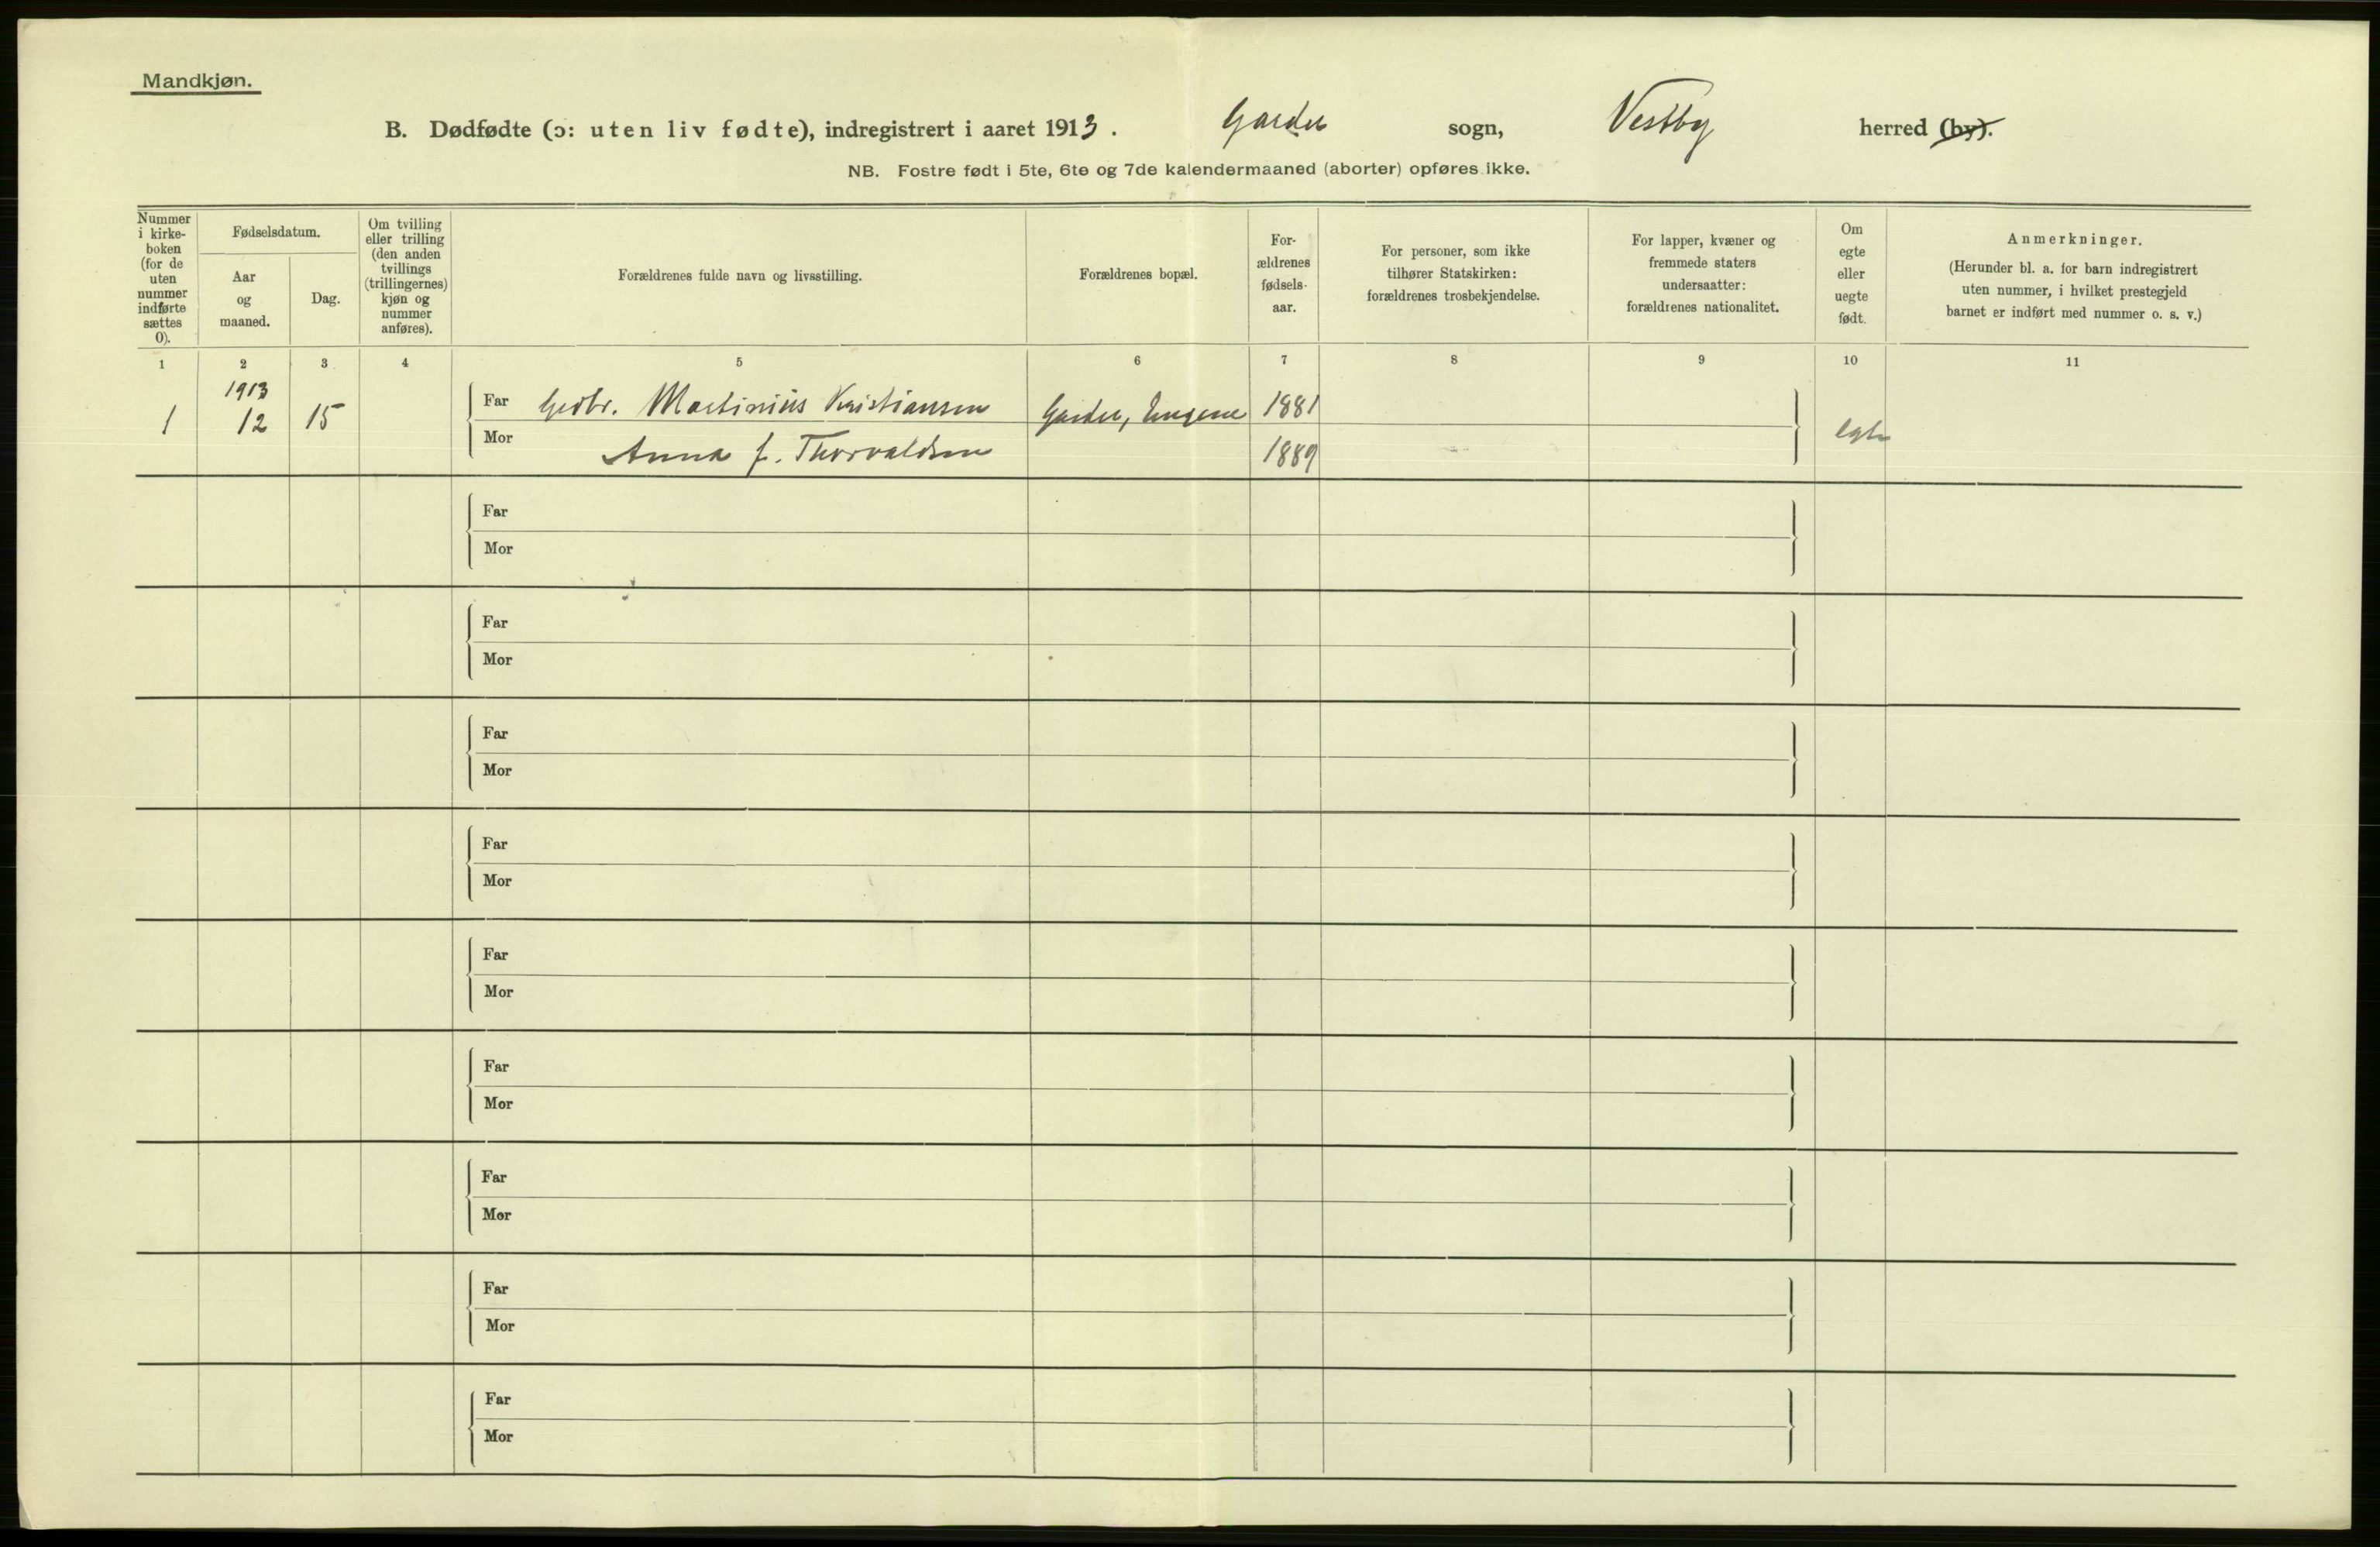 Mandkjøn.
B. Dødfødte (ɔ: uten liv fødte), indregistrert i aaret 1913. Garder sogn, Vestby herred (by).
NB. Fostre født i 5te, 6te og 7de kalendermaaned (aborter) opføres ikke.
Nummer
i kirke-
boken
(for de
uten
nummer
indførte
sættes
0).
Fødselsdatum.
Aar
og
maaned.
Dag.
Om tvilling
eller trilling
(den anden
tvillings
(trillingernes)
kjøn og
nummer
anføres).
Forældrenes fulde navn og livsstilling.
Forældrenes bopæl.
For-
ældrenes
fødsels-
aar.
For personer, som ikke
tilhører Statskirken:
forældrenes trosbekjendelse.
For lapper, kvæner og
fremmede staters
undersaatter:
forældrenes nationalitet.
Om
egte
eller
uegte
født.
Anmerkninger.
(Herunder bl. a. for barn indregistrert
uten nummer, i hvilket prestegjeld
barnet er indført med nummer o. s. v.)
1 2 3 4 5 6 7 8 9 10 11
1913
1 12 15 Far Martinius Kristiansen Garder, 1881
egte
Mor Anna f. Thorvaldsen 1889
Far
Mor
Far
Mor
Far
Mor
Far
Mor
Far
Mor
Far
Mor
Far
Mor
Far
Mor
Far
Mor